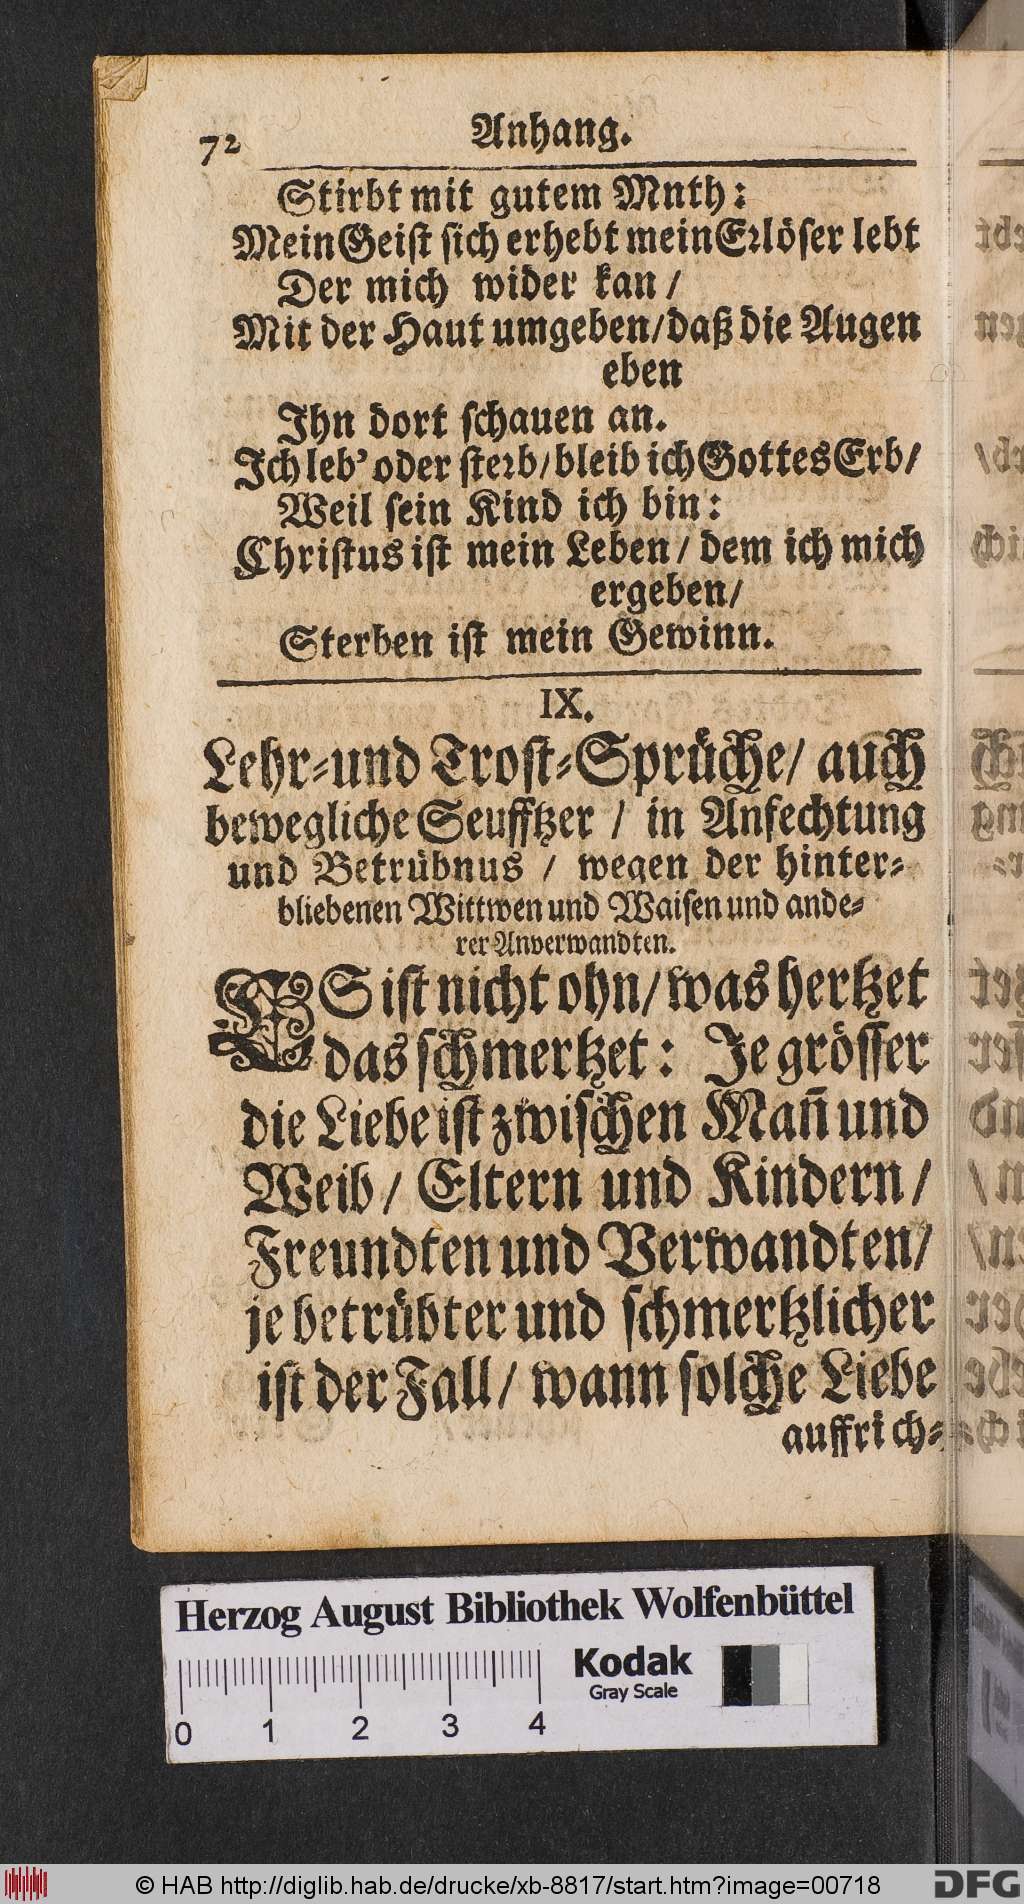 72
Anhang.
Stirbt mit gutem Mnth:
Mein Geiſt ſich erhebt mein Erlöſer lebt
Der mich wider kan /
Mit der Haut umgeben/daß die Augen
eben
Ihn dort ſchauen an.
Ich leb' oder ſterb/bleib ich Gottes Erb/
Weil ſein Kind ich bin:
Chriſtus iſt mein Leben / dem ich mich
ergeben/
Sterben iſt mein Gewinn.
IX.
Lehr-und Troſt-Sprüche/ auch
bewegliche Seufftzer / in Anfechtung
und Betrübnus / wegen der hinter-
bliebenen Wittwen und Waiſen und ande-
rer Anverwandten.
ES iſt nicht ohn/was hertzet
das ſchmertzet: Je gröſſer
die Liebe iſt zwiſchen Man̄ und
Weib/ Eltern und Kindern/
Freundten und Verwandten/
je betrübter und ſchmertzlicher
iſt der Fall/ wann ſolche Liebe
auffrich-
Herzog August Bibliothek Wolfenbüttel
Kodak
Gray Scale
0 1 2 3 4
© HAB http://diglib.hab.de/drucke/xb-8817/start.htm?image=00718
DFG